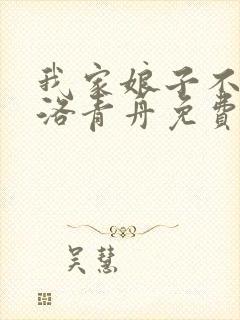 我家娘子不
洛青丹免费
吴慧